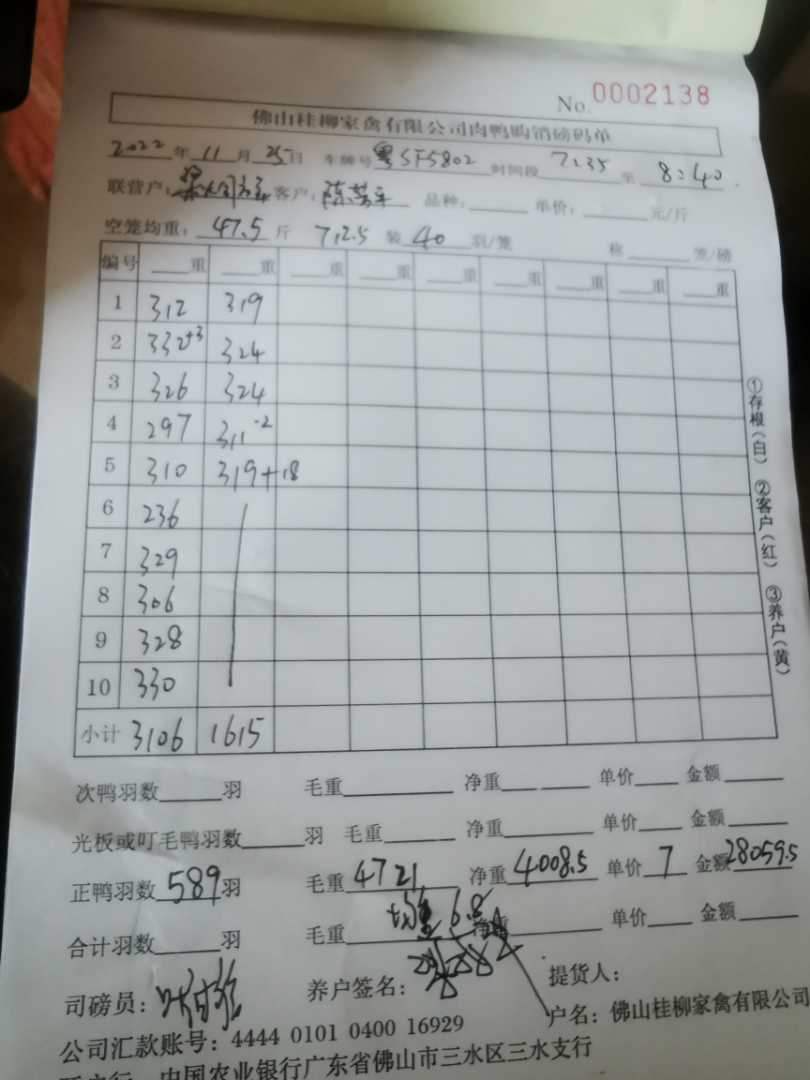 No. 0002138
佛山桂柳家禽有限公司肉鸭购销磅码单
2022 年 11 月 25 日 车牌号 粤SF5802 时间段 7:35 至 8:40
联营户: 客户: 品种: 单价: 元/斤
空笼均重: 47.5 斤 712.5 装 40 羽/笼 称 笼/磅
编号 重 重 重 重 重 重 重 重 重
1 312 319
2 332+3 324
3 326 324
4 297 311-2
5 310 319+18
6 236
7 329
8 306
9 328
10 330
小计 3106 1615
①存根(白) ②客户(红) ③养户(黄)
次鸭羽数 羽 毛重 净重 单价 金额
光板或叮毛鸭羽数 羽 毛重 净重 单价 金额
正鸭羽数 589 羽 毛重 4721 净重 4008.5 单价 7 金额 28059.5
合计羽数 羽 毛重 6.8 净重 单价 金额
司磅员: 养户签名: 提货人:
公司汇款账号: 4444 0101 0400 16929 户名: 佛山桂柳家禽有限公司
中国农业银行广东省佛山市三水区三水支行